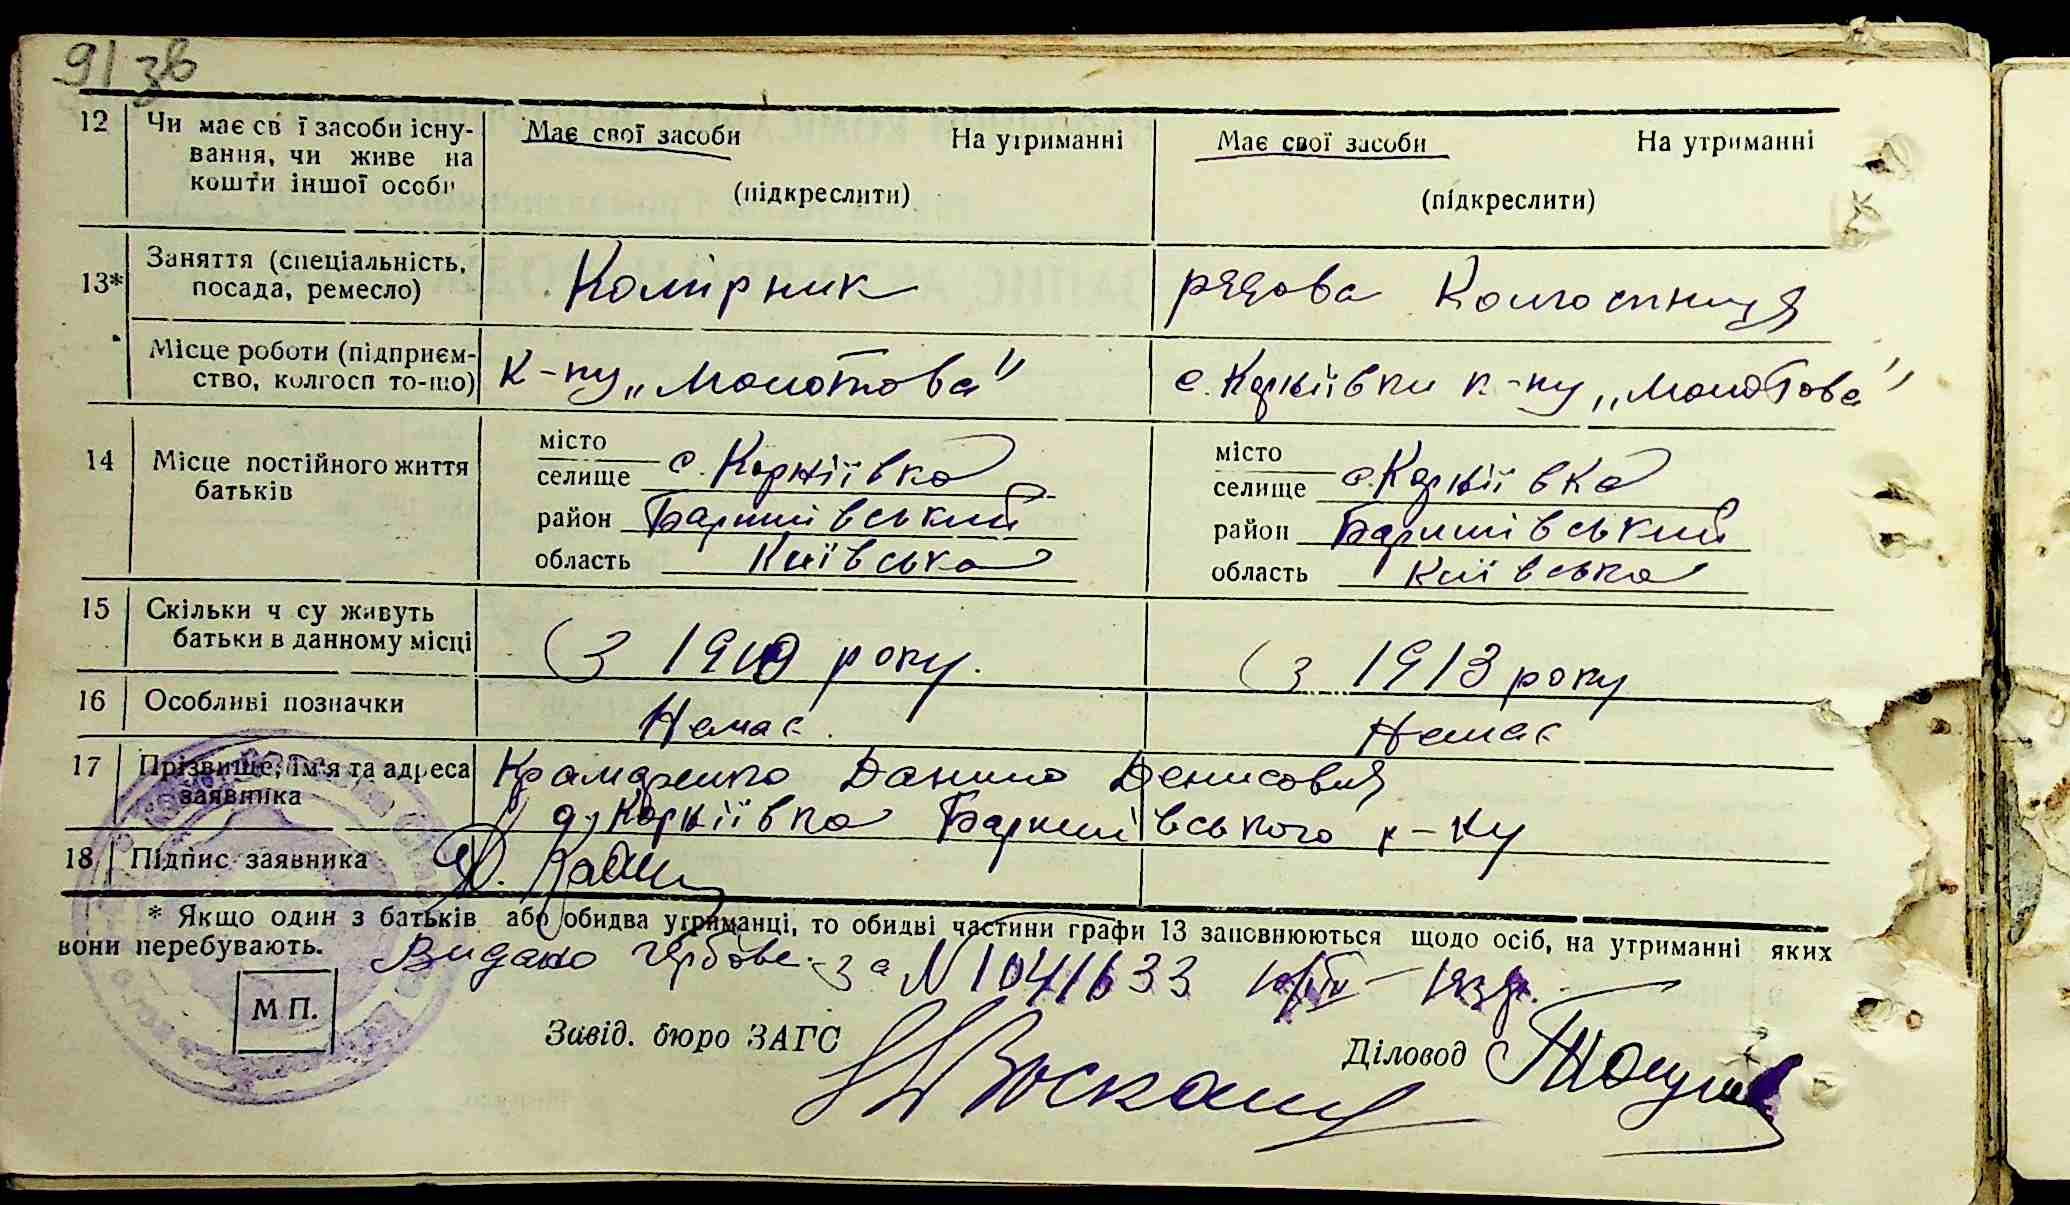 91 зв
12 Чи має св ї засоби існу- Має свої засоби На утриманні Має свої засоби На утриманні
вання, чи живе на
кошти іншої особи (підкреслити) (підкреслити)
13* Заняття (спеціальність, Комірник рядова Колгоспниця
посада, ремесло)
Місце роботи (підприєм- К-пу „Молотова" с. Коржіївки к-пу „Молотова"
ство, колгосп то-що)
14 Місце постійного життя місто місто
батьків селище с. Коржіївка селище с. Коржіївка
район Баришівський район Баришівський
область Київська область Київська
15 Скільки ч су живуть З 1910 року. з 1913 року
батьки в данному місці
16 Особливі позначки Немає. Немає
17 Прізвище, ім'я та адреса Крамаренко Данило Денисович
заявника с. Коржіївка Баришівського р-ну
18 Підпис заявника
* Якщо один з батьків або обидва утриманці, то обидві частини графи 13 заповнюються щодо осіб, на утриманні яких
вони перебувають.
Видано гербове за № 1041633
М П.
Завід. бюро ЗАГС Діловод